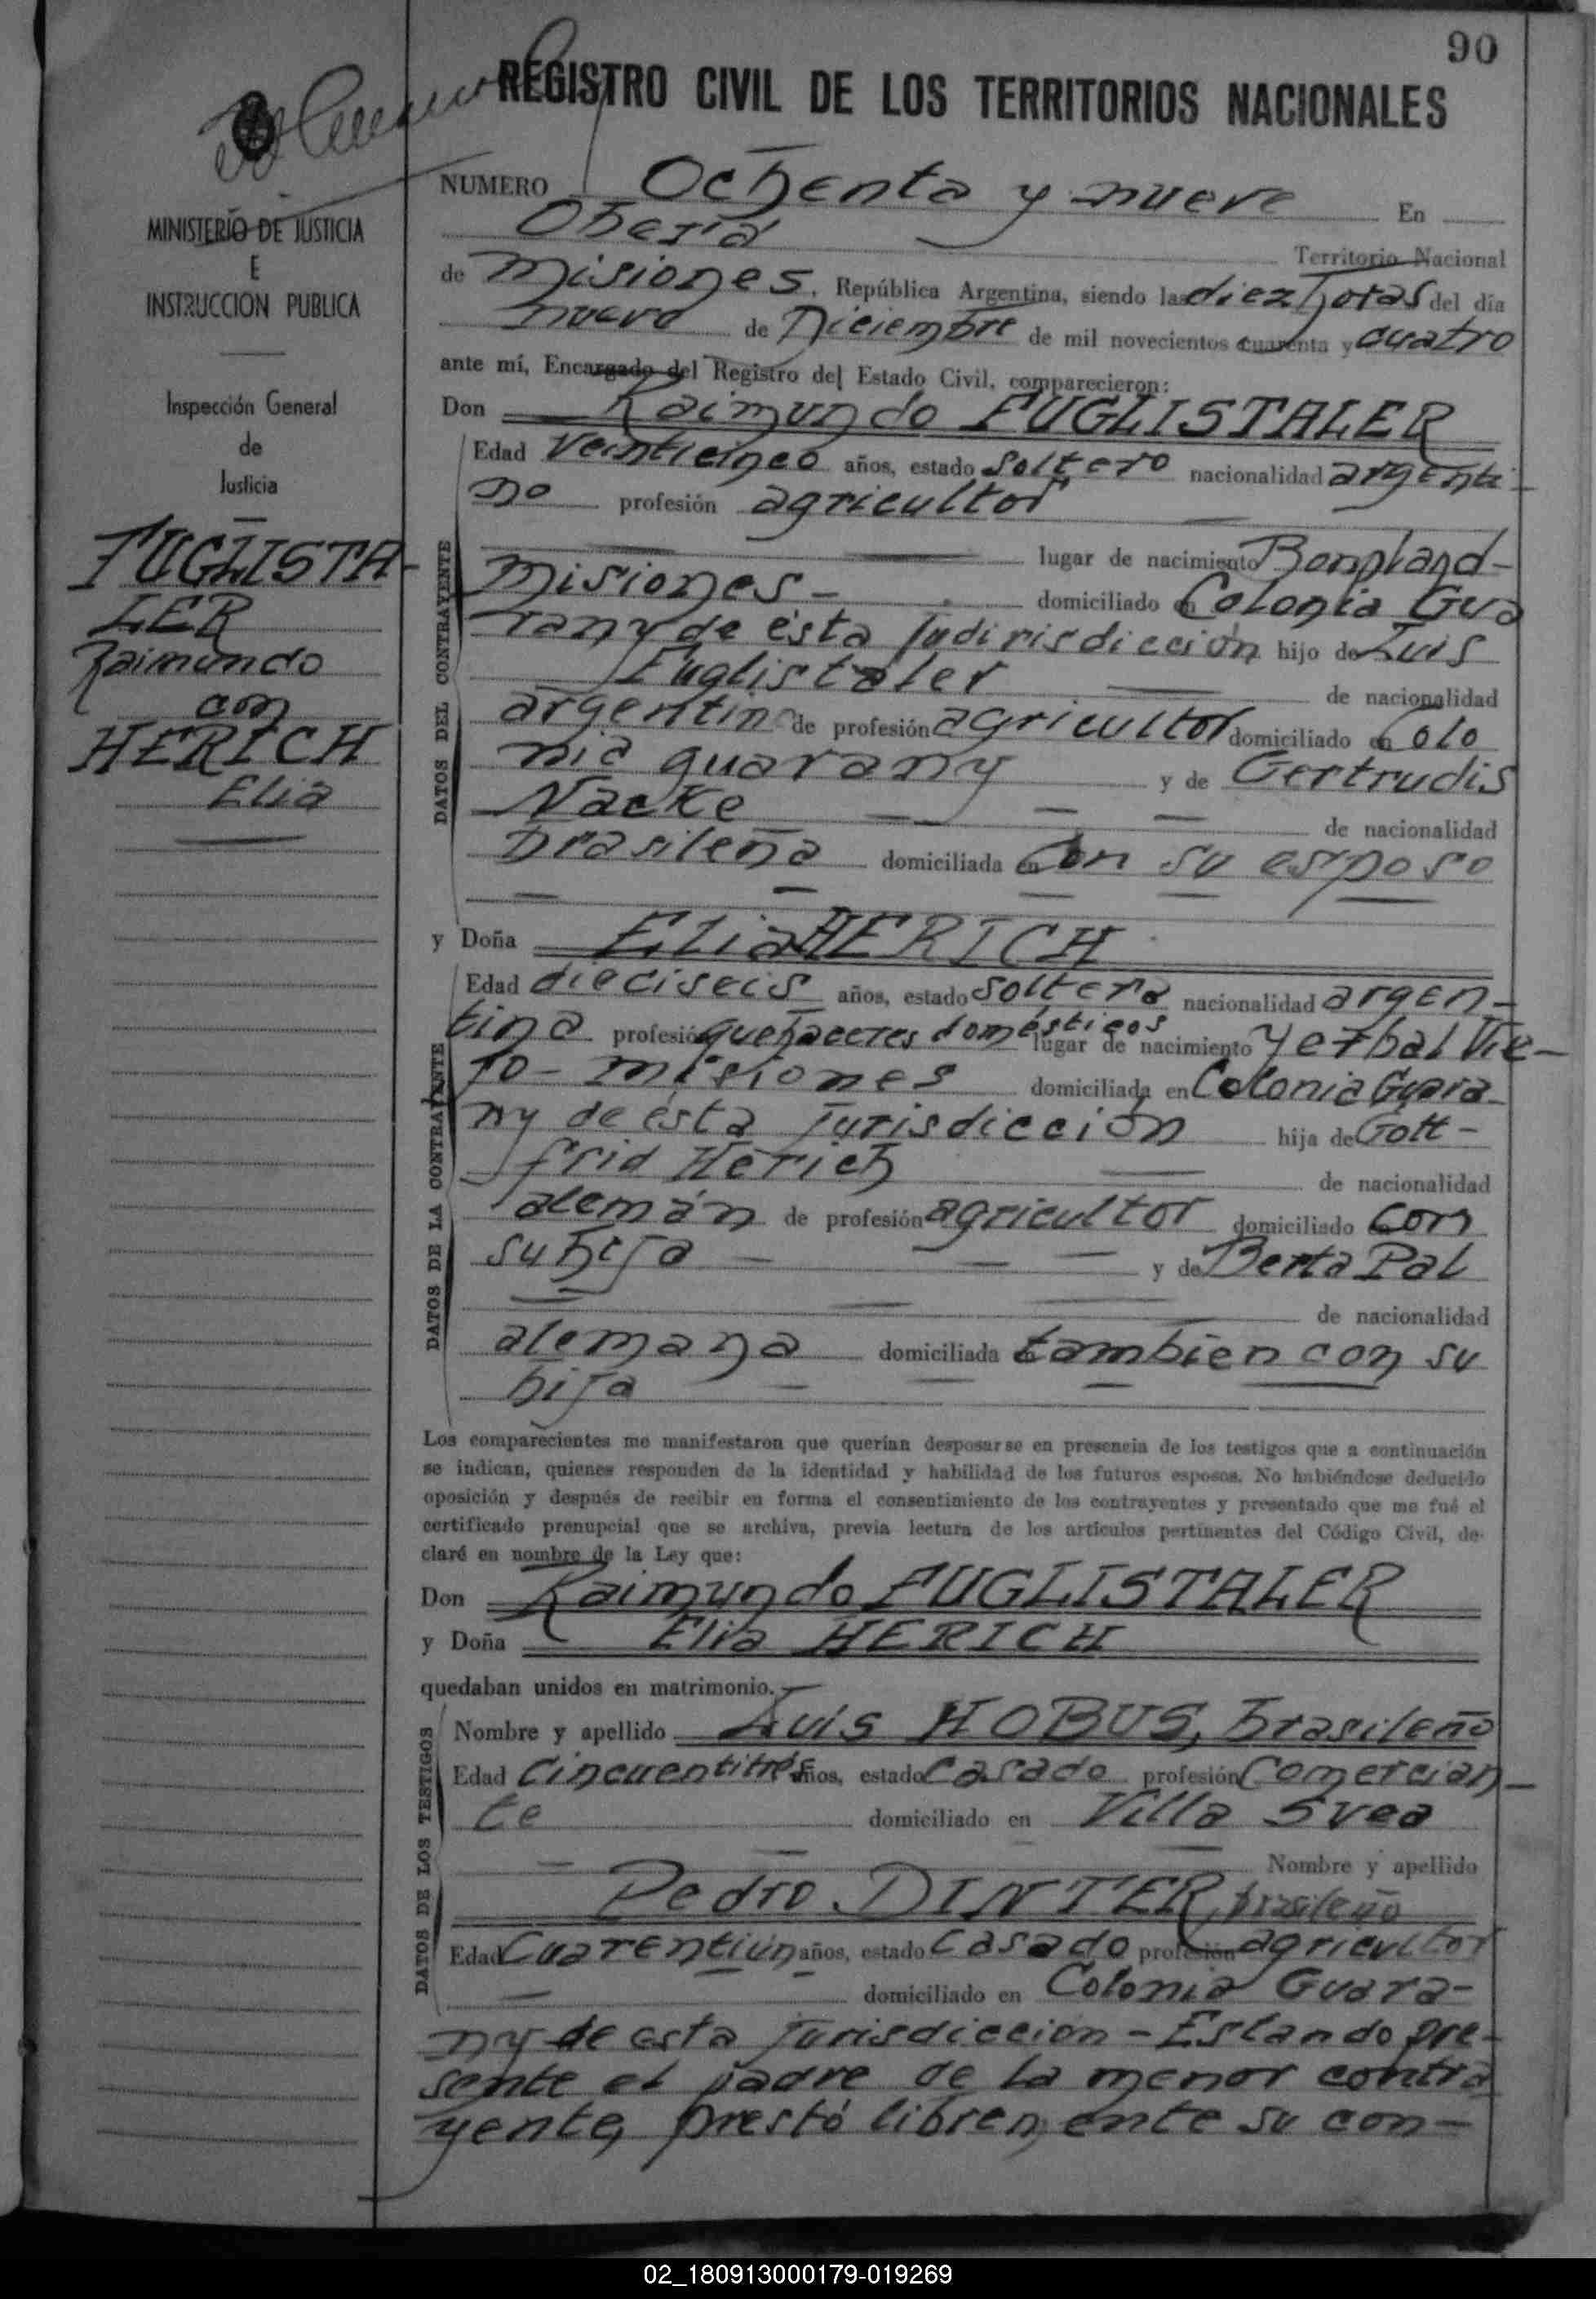 90
REGISTRO CIVIL DE LOS TERRITORIOS NACIONALES
MINISTERIO DE JUSTICIA
E
INSTRUCCION PUBLICA
Inspección General
de
Justicia
FUGLISTA-
LER
Raimundo
con
HERICH
Elia
NUMERO Ochenta y nueve En
Oberá Territorio Nacional
de Misiones, República Argentina, siendo las diez horas del día
nueve de Diciembre de mil novecientos cuarenta y cuatro
ante mí, Encargado del Registro del Estado Civil, comparecieron:
Don Raimundo FUGLISTALER
DATOS DEL CONTRAYENTE
Edad veinticinco años, estado soltero nacionalidad argenti-
no profesión agricultor
lugar de nacimiento Bonpland-
Misiones- domiciliado en Colonia Gua
rany de ésta Judirisdicción hijo de Luis
Fuglistaler de nacionalidad
argentino de profesión agricultor domiciliado en Colo
nia guarany y de Gertrudis
Nacke de nacionalidad
brasileña domiciliada en con su esposo
y Doña Elia HERICH
DATOS DE LA CONTRAYENTE
Edad dieciseis años, estado soltera nacionalidad argen-
tina profesión quehaceres domésticos lugar de nacimiento Yerbal Vie-
jo- Misiones domiciliada en Colonia Guara-
ny de ésta jurisdicción hija de Gott-
frid Herich de nacionalidad
alemán de profesión agricultor domiciliado en con
su hija y de Berta Pal
de nacionalidad
alemana domiciliada en tambien con su
hija
Los comparecientes me manifestaron que querían desposarse en presencia de los testigos que a continuación
se indican, quienes responden de la identidad y habilidad de los futuros esposos. No habiéndose deducido
oposición y después de recibir en forma el consentimiento de los contrayentes y presentado que me fué el
certificado prenupcial que se archiva, previa lectura de los artículos pertinentes del Código Civil, de-
claré en nombre de la Ley que:
Don Raimundo FUGLISTALER
y Doña Elia HERICH
quedaban unidos en matrimonio.
DATOS DE LOS TESTIGOS
Nombre y apellido Luis HOBUS, brasileño
Edad Cincuentitrés años, estado Casado profesión Comercian-
te domiciliado en Villa Svea
Nombre y apellido
Pedro DINTER, brasileño
Edad Cuarentiún años, estado Casado profesión agricultor
domiciliado en Colonia Guara-
ny de esta jurisdiccion - Estando pre-
sente el padre de la menor contra
yente, prestó libremente su con-
02_180913000179-019269